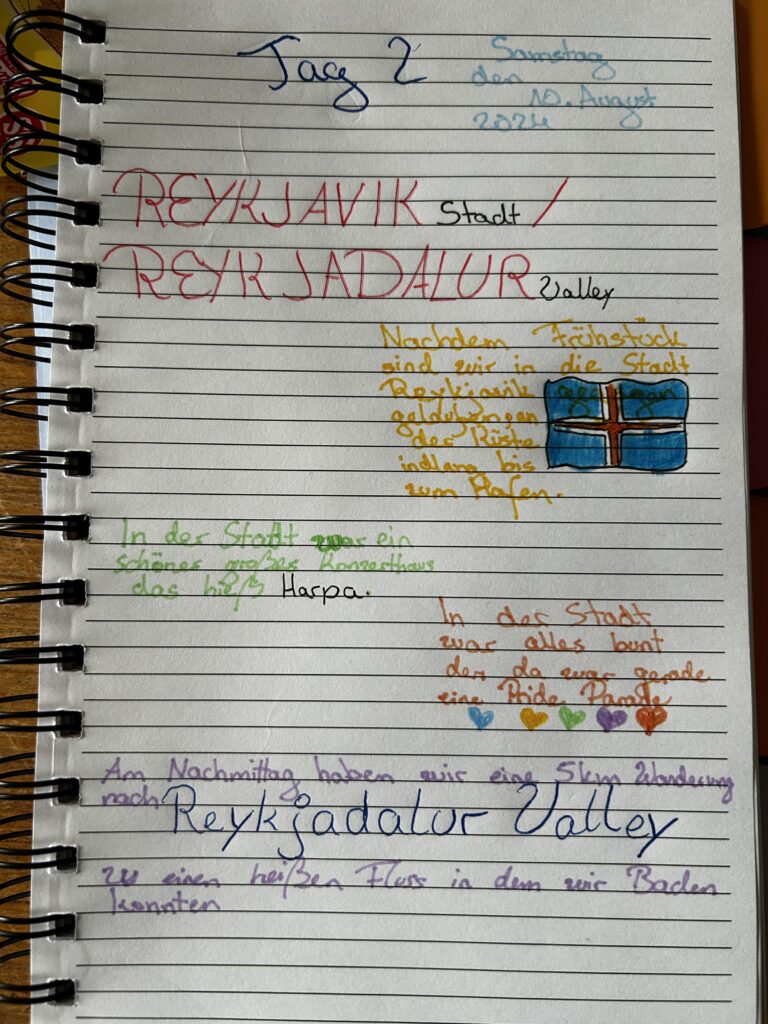 Tag 2
Samstag
den
10. August
2024
REYKJAVIK Stadt /
REYKJADALUR Valley
Nachdem Frühstück
sind wir in die Stadt
Reykjavik gegangan
der Küste
indlang bis
zum Hafen.
In der Stadt war ein
schönes großes Konzerthaus
das hieß Harpa.
In der Stadt
war alles bunt
den da war gerade
eine Pride Parade
Am Nachmittag haben wir eine 5km Wanderung
nach Reykjadalur Valley
zu einen heißen Fluss in dem wir Baden
konnten